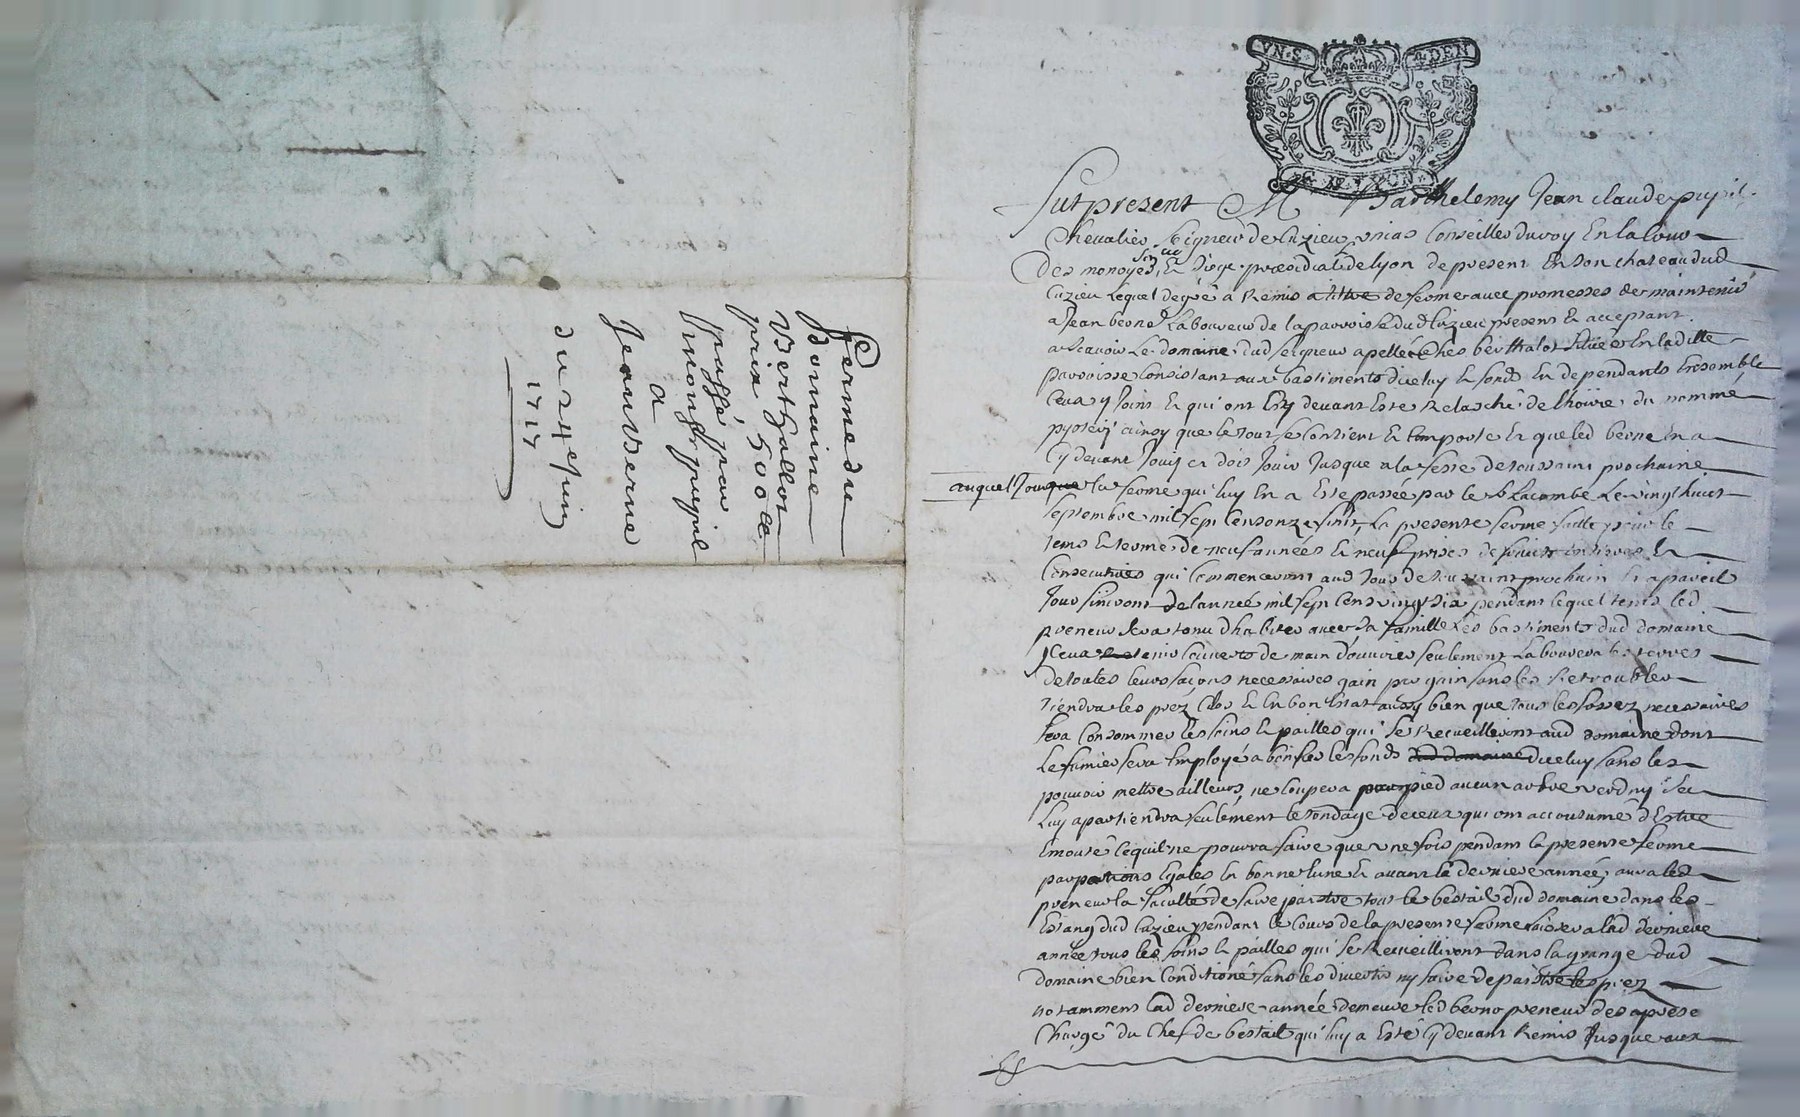 Ferme du
domaine
Berthallot
prix 500 ll
passé par
monsr pupil
a
Jean Verne
du 24e Juin
1717
VN·S· 4·DEN
G· DE LYON
Fut present Mr Barthelemy Jean claude pupil
Chevalier Seigneur de Cuzieu Conseiller du roy En la Cour
Des monoyes Sen. et siege presidial de lyon de present En son chateau dud
Cuzieu lequel de gré a Remis a titre de ferme avec promesses de maintenir
a Jean berne Laboureur de la parroisse dud Cuzieu present et acceptant
a scavoir le domaine dud seigneur apellé ches berthalot situé En laditte
parroisse Consistant aux bastiments diceluy et fonds En dependants Ensemble
Ceux y Joint et qui ont Cy devant Esté Relasché de lhoirie du nommé
ainsy que le tout se Contient et Comporte et que led berne En a
Cy devant Jouy et dois Jouir Jusque a la feste de toussaint prochaine
auquel Jour la ferme qui luy En a Esté passée par le Sr Lacombe Le vingt huict
septembre mil sept Cens onze finit, La presente ferme faitte pour le
tems et terme de neuf années et neuf prises de fruits entieres et
Consecutives qui Commenceront aud Jour de toussaint prochain et a pareil
Jour finiront de lannée mil sept Cens vingt six pendant lequel tems led
preneur sera tenu dhabiter avec sa famille Les bastiments dud domaine
yceux tenir de main douvrier seulement Labourera les terres
de toutes leurs façons necessaires gain par gain sans les Retroubler
tiendra les prez Clos et En bon Estat aussy bien que tous les fossez necessaires
fera Consommer les foins et pailles qui se Recueilliront aud domaine dont
Le fumier sera Employé a bonifier les fonds dud domaine diceluy sans les
pouvoir mettre ailleurs, ne Coupera par pied aucun arbre verd ny sec
Luy apartiendra seulement le tondage de ceux qui ont accoutumé dEstre
Emouté Ce quil ne pourra faire que une fois pendant la presente ferme
par portions Egales En bonne lune et avant la derniere année, aura led
preneur la faculté de faire paistre tout le bestail dud domaine dans les
Estang dud Cuzieu pendant le Cours de la presente ferme laissera lad derniere
année tous les foins et pailles qui se Recueilliront dans la grange dud
domaine bien Conditioné sans les divertir ny faire depaistre les prez
notamment lad derniere année demeure led berne preneur des apresent
Chargé du Chef de bestail qui luy a Esté Cy devant Remis Jusque aux